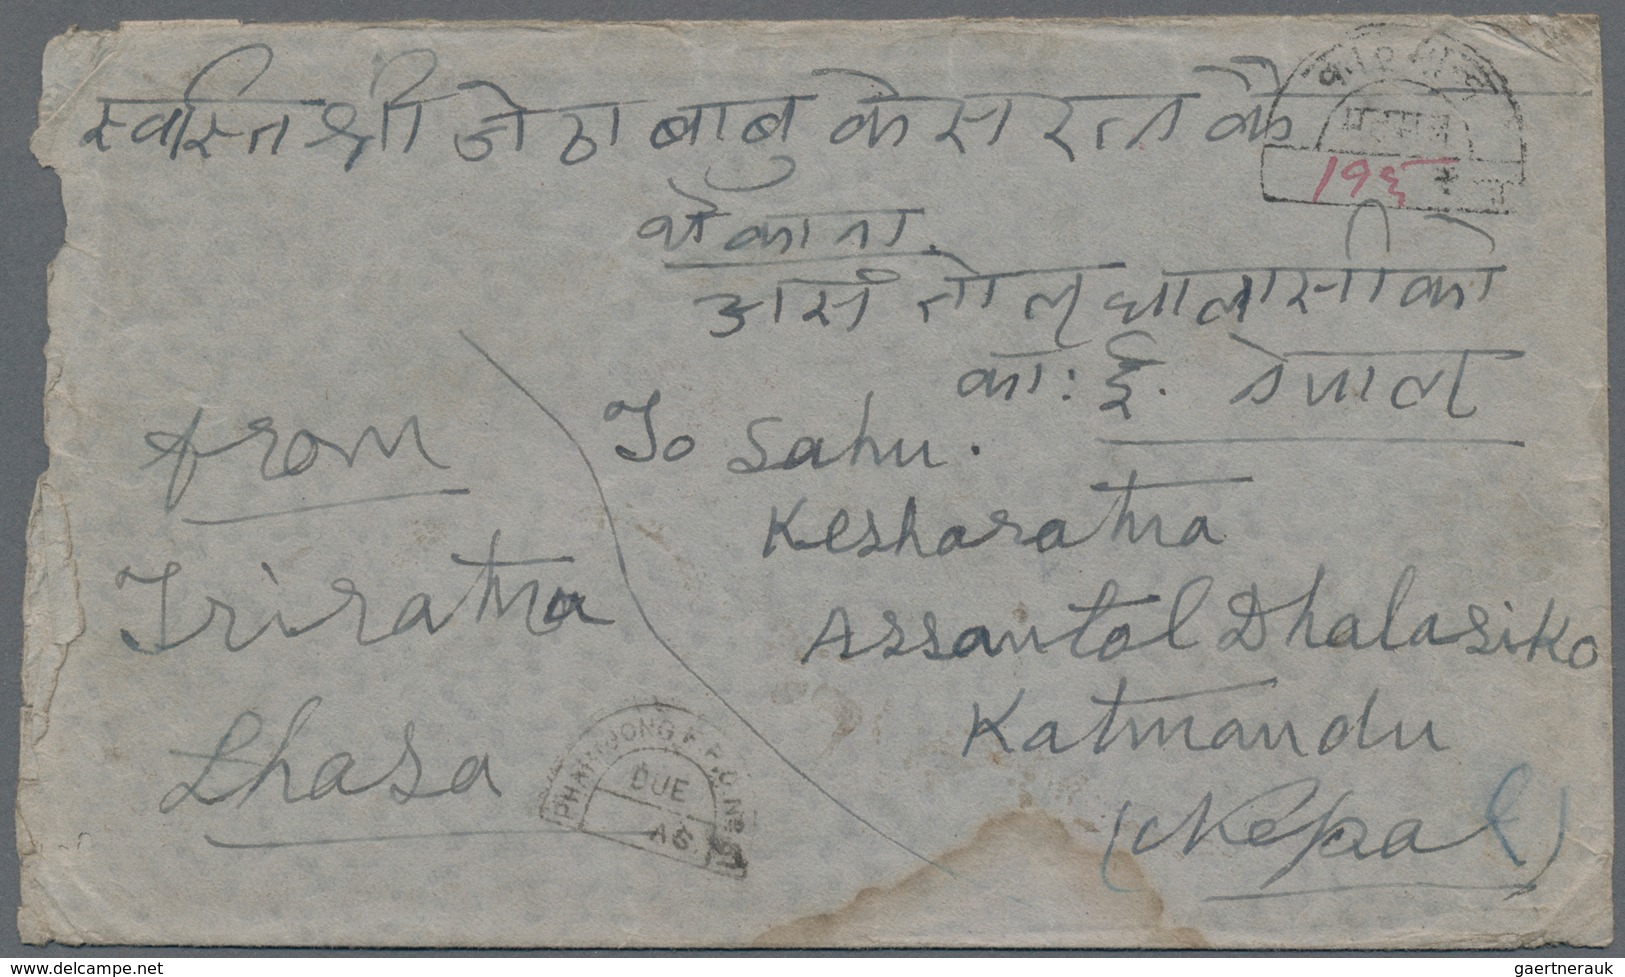 स्वस्ति श्री जेठा बाबु केसरत्न कै
ठेकाना.
असं तोल धालासीको
का: ई. नेपाल
महसुल
१९६
from
Triratna
Lhasa
To Sahu.
Kesharatna
Assantol Dhalasiko
Katmandu
(Nepal)
PHARIJONG F.P.O. No
DUE
AS.
delcampe.net
gaertnerauk